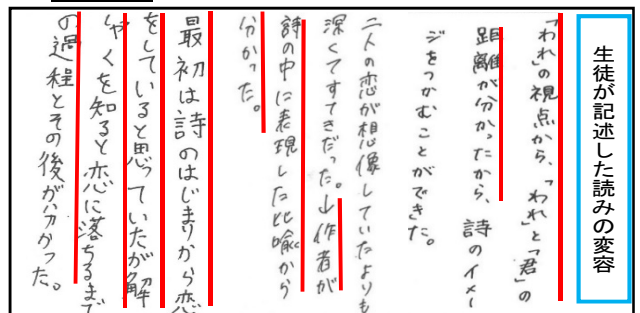 生徒が記述した読みの変容
「われ」の視点から、「われ」と「君」の
距離が分かったから、詩のイメー
ジをつかむことができた。
二人の恋が想像していたよりも
深くてすてきだった。作者が
詩の中に表現した比喩から
分かった。
最初は詩のはじまりから恋
をしていると思っていたが解
しゃくを知ると恋に落ちるまで
の過程とその後が分かった。